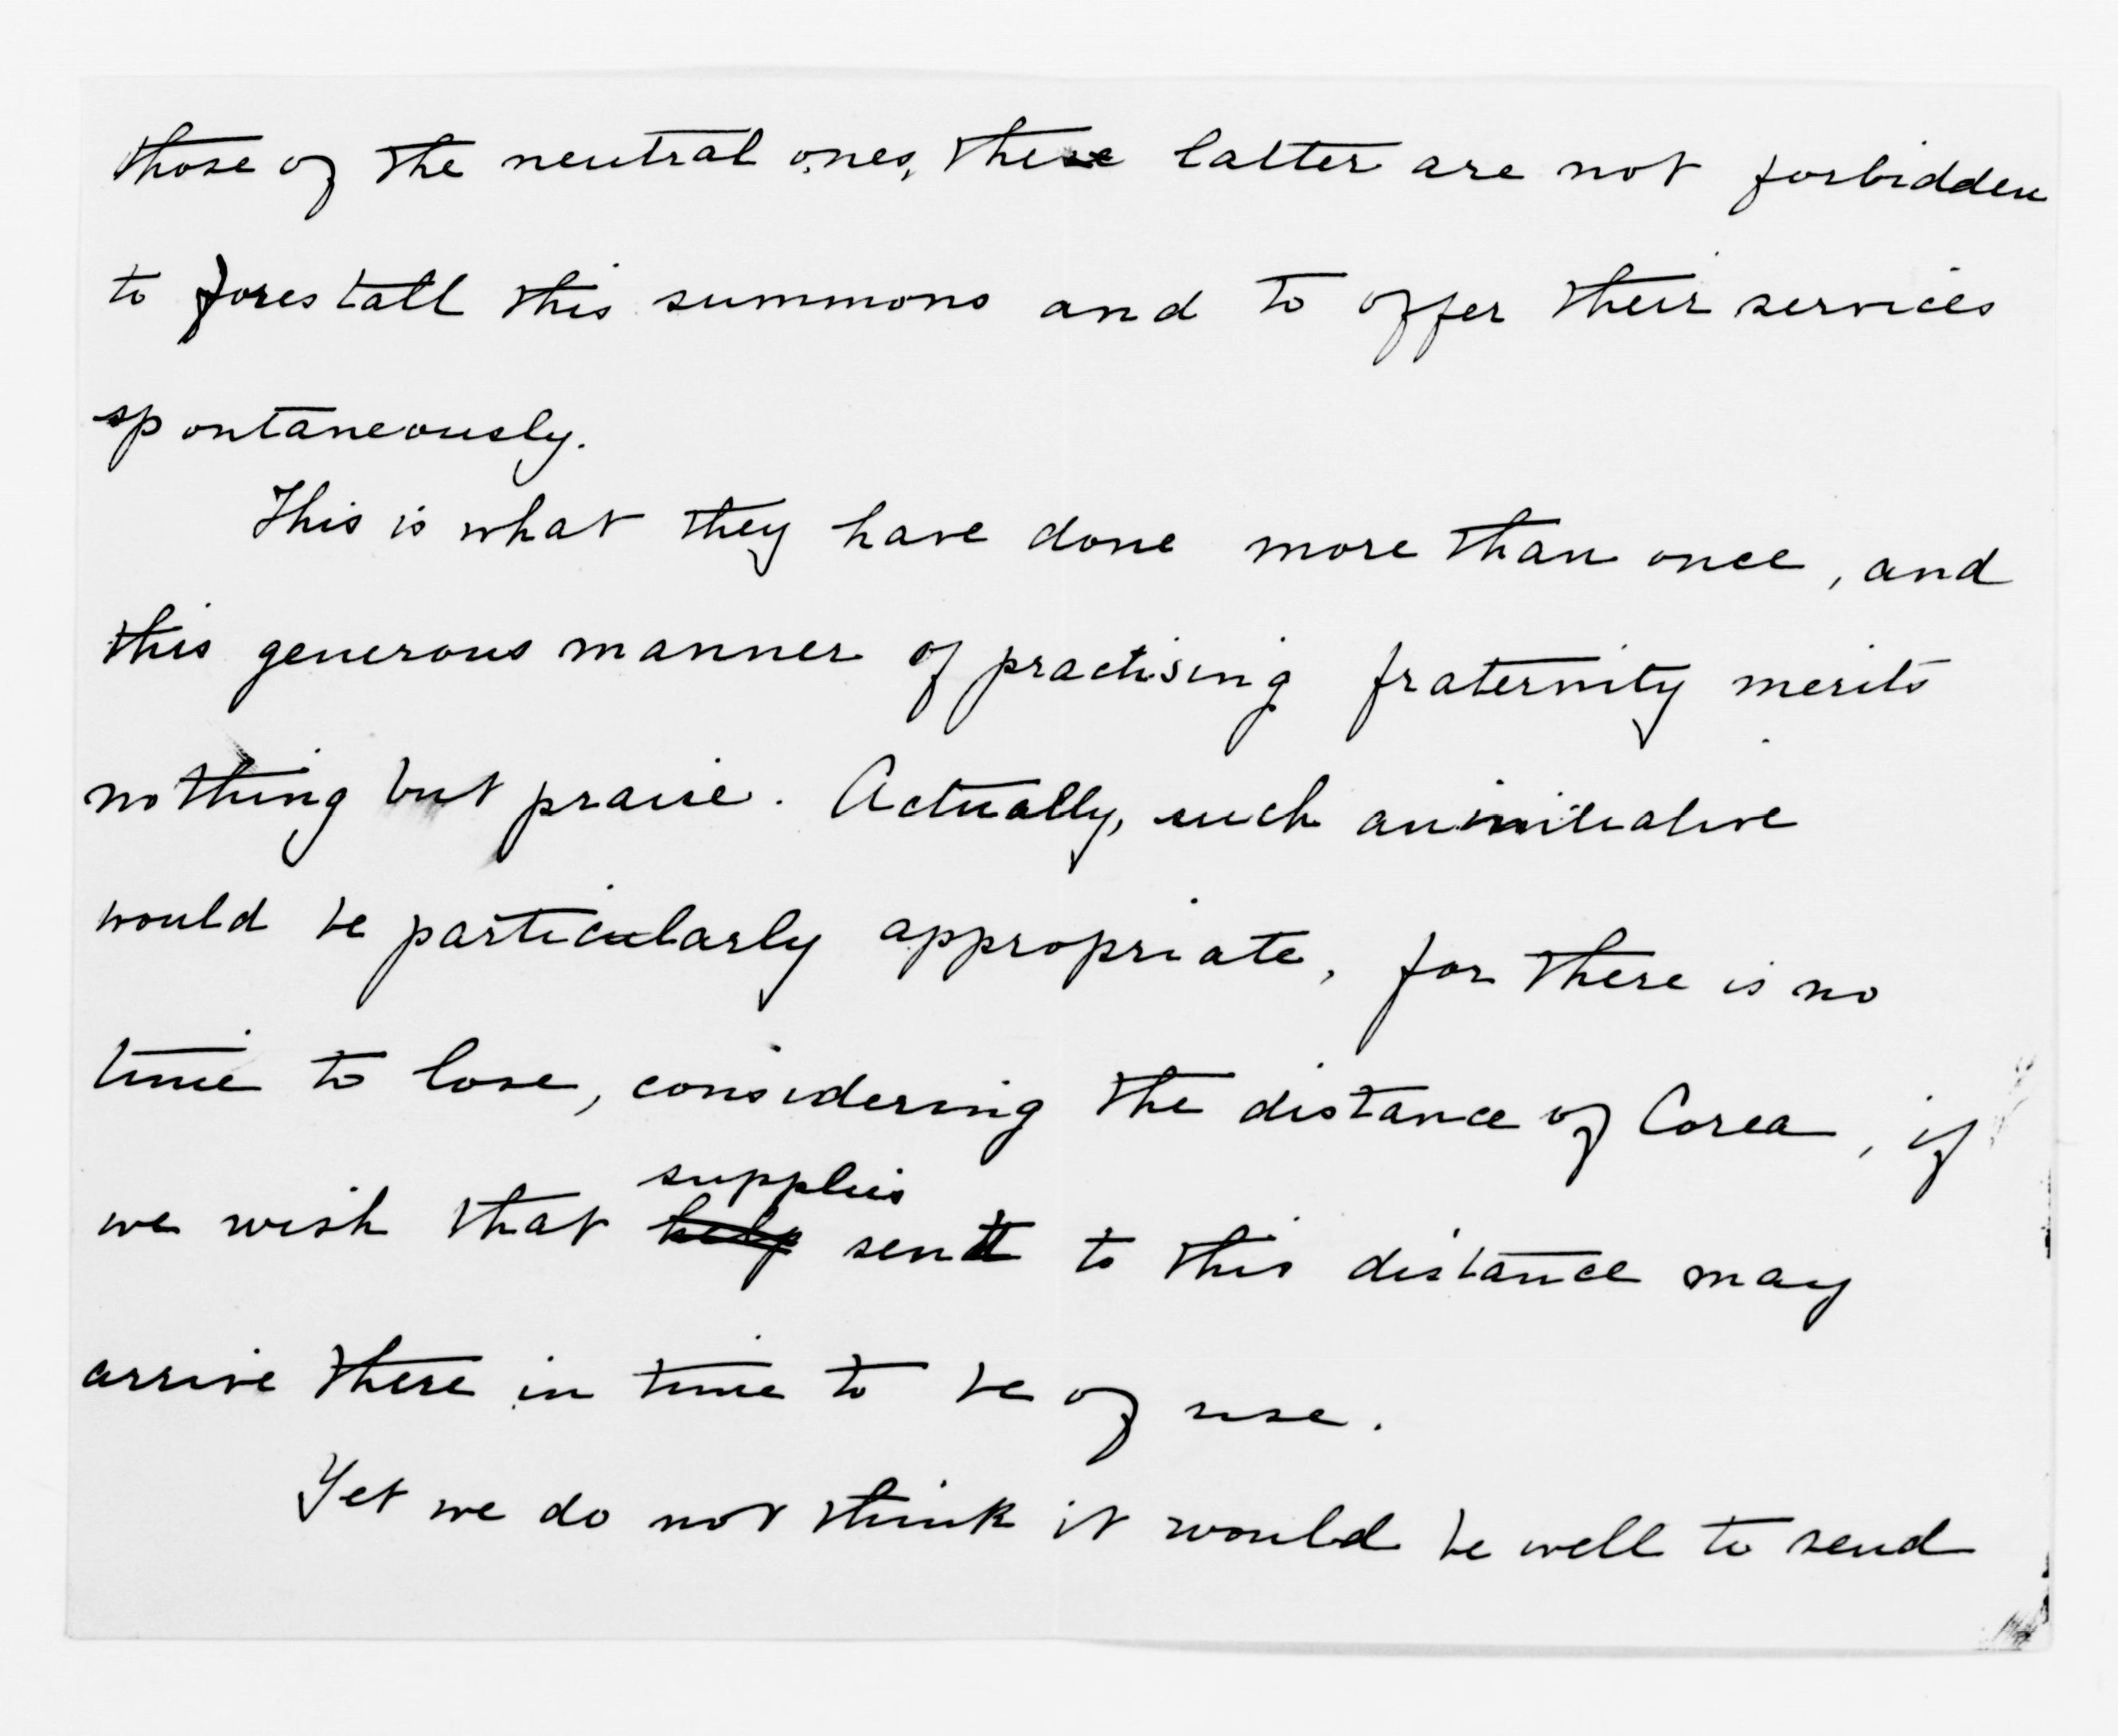 those of the neutral ones, these latter are not forbidden
to forestall this summons and to offer their services
spontaneously.
This is what they have done more than once, and
this generous manner of practising fraternity merits
nothing but praise. Actually, such an initiative
would be particularly appropriate, for there is no
time to lose, considering the distance of Corea, if
supplies
we wish that help sent to this distance may
arrive there in time to be of use.
Yet we do not think it would be well to send